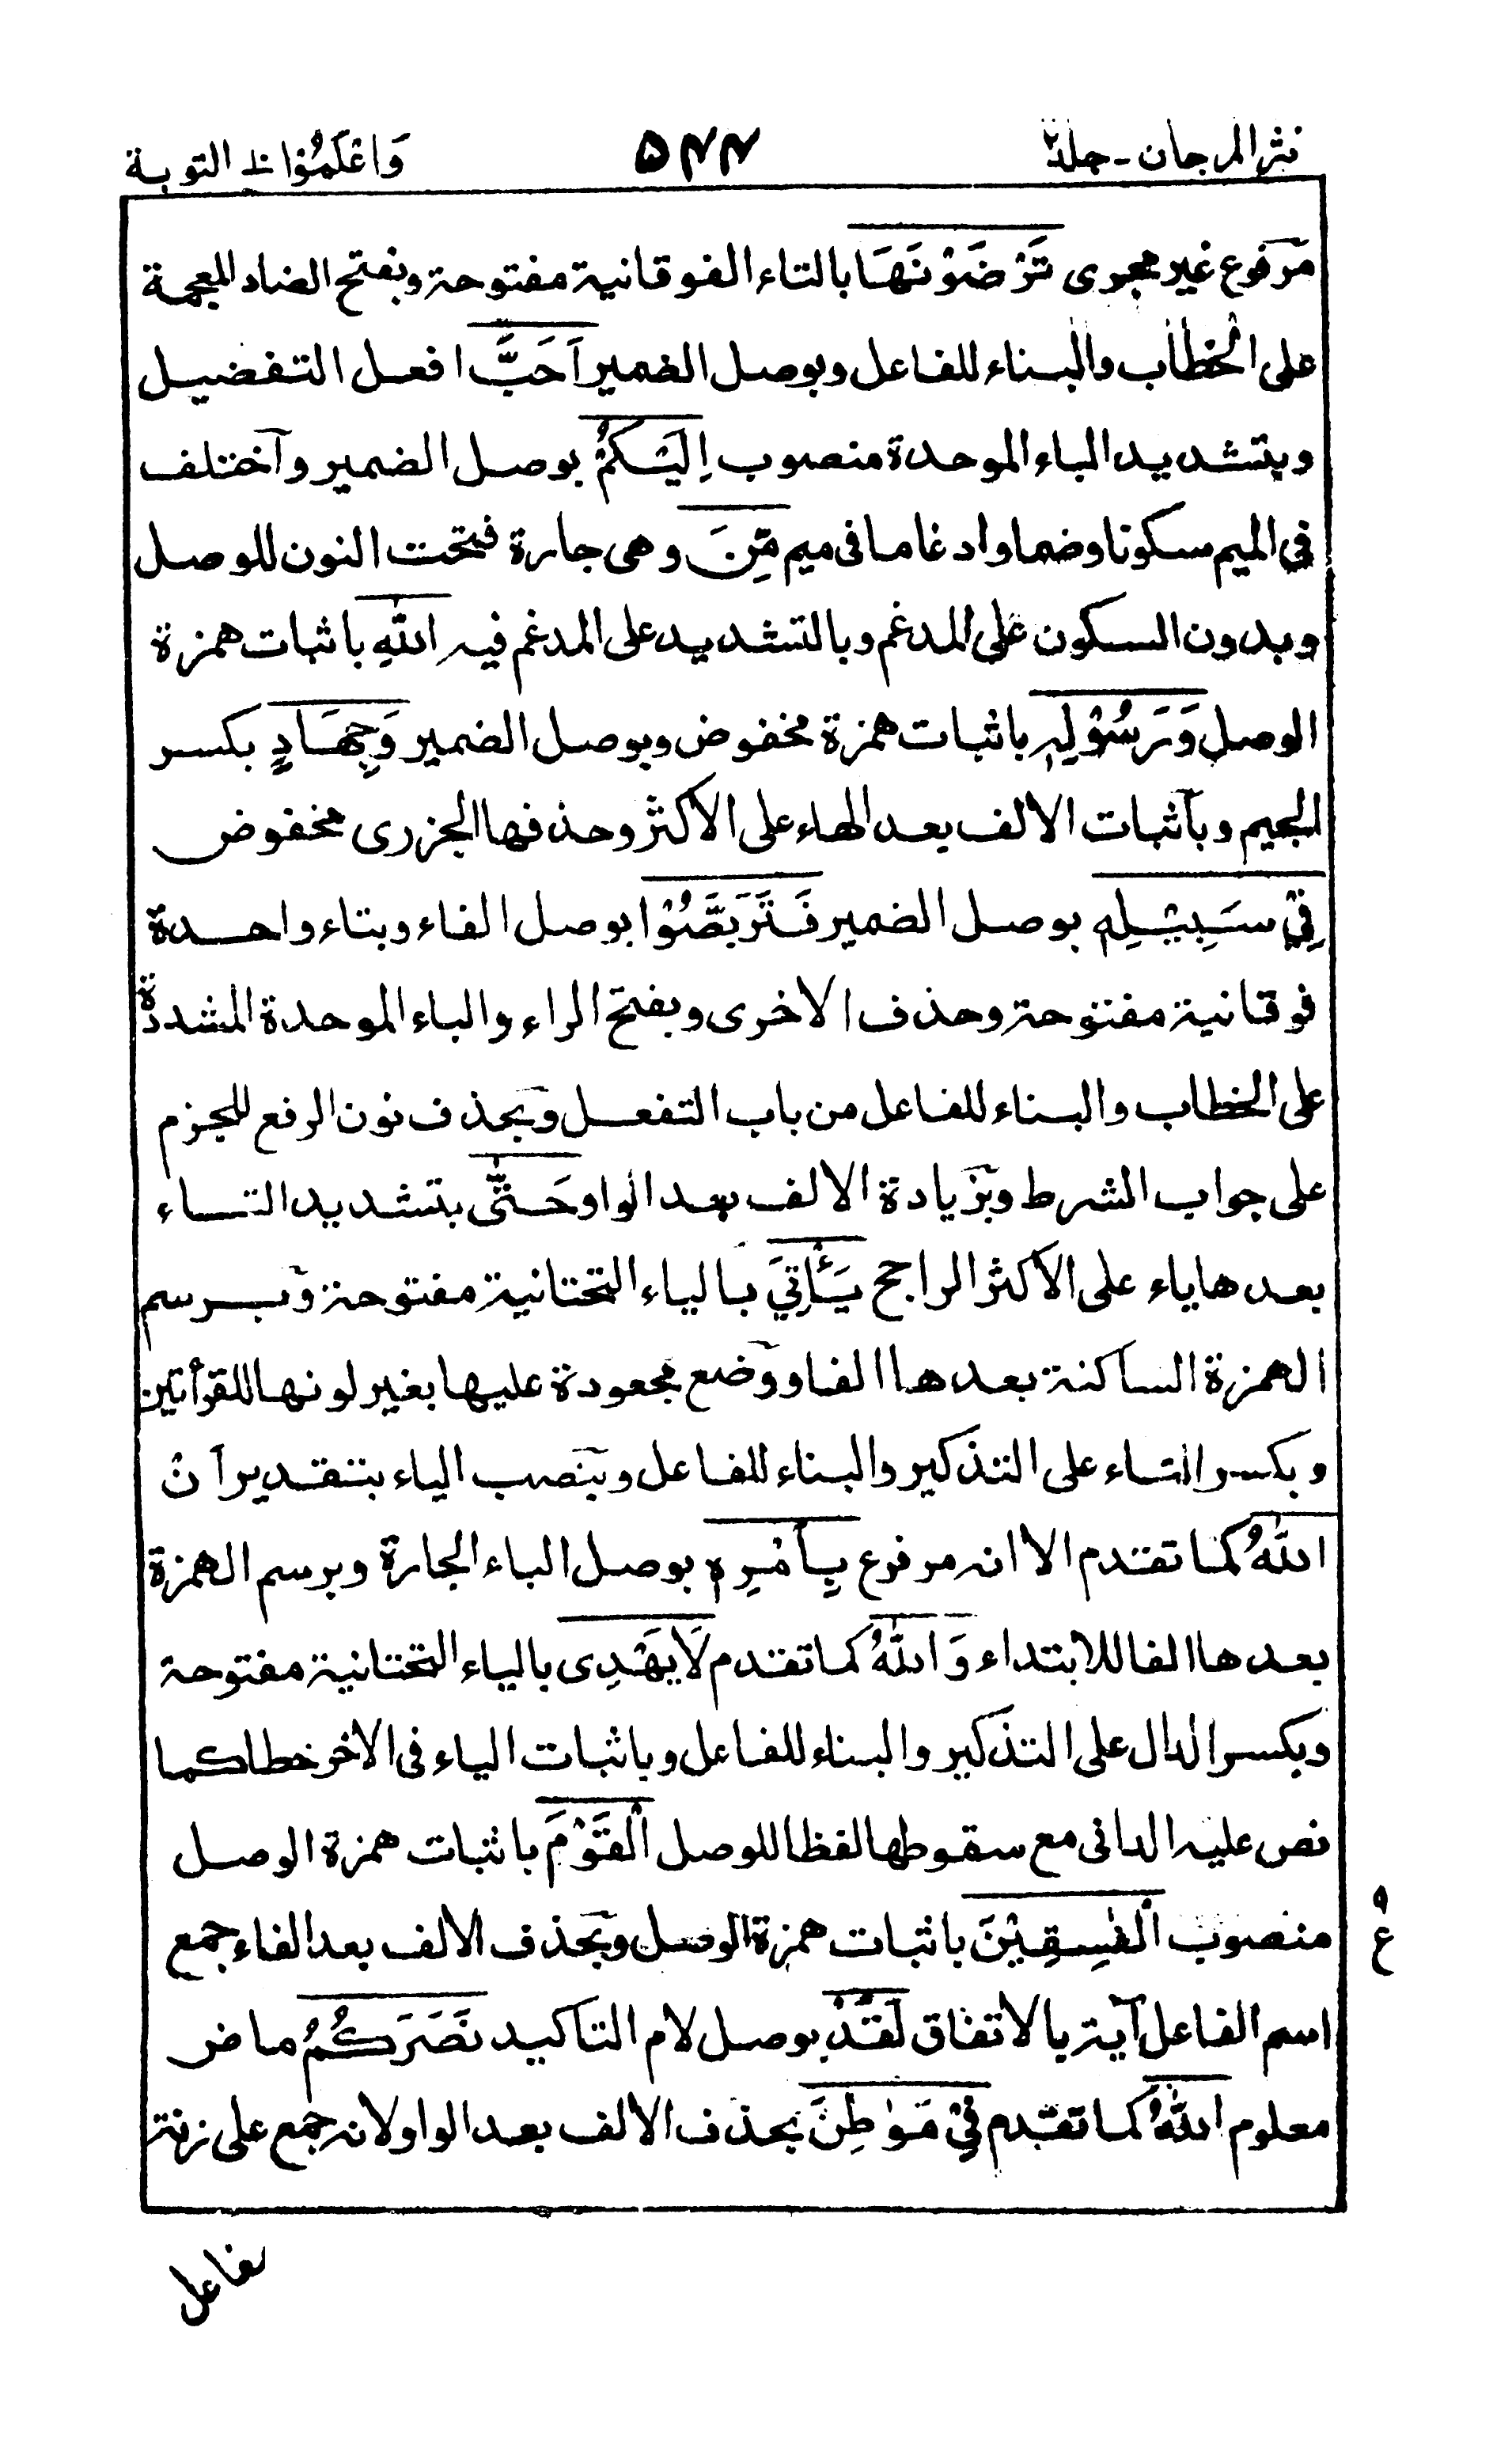 نثر المرجان - جلد۲ ۵۴۴ وَاعْلَمُوْا ۱۰ التوبة
مرفوع غير مجرى تَرْضَوْنَهَا بالتاء الفوقانية مفتوحة وبفتح الضاد المعجمة
على الخطاب والبناء للفاعل وبوصل الضمير اَحَبَّ افعل التفضيل
وبتشديد الباء الموحدة منصوب اِلَيْكُمْ بوصل الضمير واختلف
فى الميم سكونا وضما وادغاما فى ميم مِّنَ وهى جارة فتحت النون للوصل
وبدون السكون على المدغم وبالتشديد على المدغم فيه اللّٰهِ باثبات همزة
الوصل وَرَسُوْلِهٖ باثبات همزة مخفوض وبوصل الضمير وَجِهَادٍ بكسر
الجيم وباثبات الالف بعد الهاء على الاكثر وحذفها الجزرى مخفوض
فِيْ سَبِيْلِهٖ بوصل الضمير فَتَرَبَّصُوْا بوصل الفاء وبتاء واحدة
فوقانية مفتوحة وحذف الاخرى وبفتح الراء والباء الموحدة المشددة
على الخطاب والبناء للفاعل من باب التفعل وبحذف نون الرفع للجزم
على جواب الشرط وبزيادة الالف بعد الواو حَتّٰى بتشديد التاء
بعدها ياء على الاكثر الراجح يَاْتِيَ بالياء التحتانية مفتوحة وبرسم
الهمزة الساكنة بعدها الفا ووضع مجعودة عليها بغير لونها للقرأتين
وبكسر التاء على التذكير والبناء للفاعل وبنصب الياء بتقدير اَنْ
اللّٰهُ كما تقدم الا انه مرفوع بِاَمْرِهٖ بوصل الباء الجارة وبرسم الهمزة
بعدها الفا للابتداء وَاللّٰهُ كما تقدم لَا يَهْدِى بالياء التحتانية مفتوحة
وبكسر الدال على التذكير والبناء للفاعل وباثبات الياء فى الاخر خطا كما
نص عليه الدانى مع سقوطها لفظا للوصل الْقَوْمَ باثبات همزة الوصل
منصوب الْفٰسِقِيْنَ باثبات همزة الوصل وبحذف الالف بعد الفاء جمع
۹
ع
اسم الفاعل آية بالاتفاق لَقَدْ بوصل لام التاكيد نَصَرَكُمُ ماض
معلوم اللّٰهُ كما تقدم فِيْ مَوٰطِنَ بحذف الالف بعد الواو لانه جمع على زنة
مفاعل